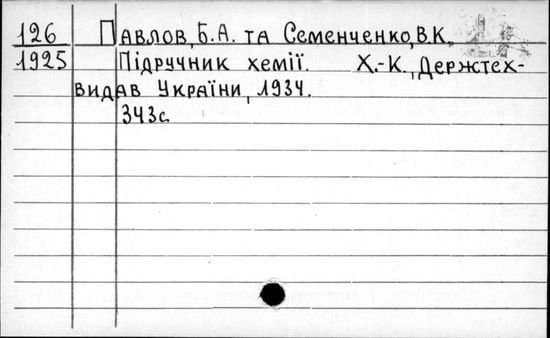 126 Павлов, Б.А. та Семенченко, В.К.
1925 Підручник хемії. Х.-К., Держтех-
видав України, 1934.
343с.